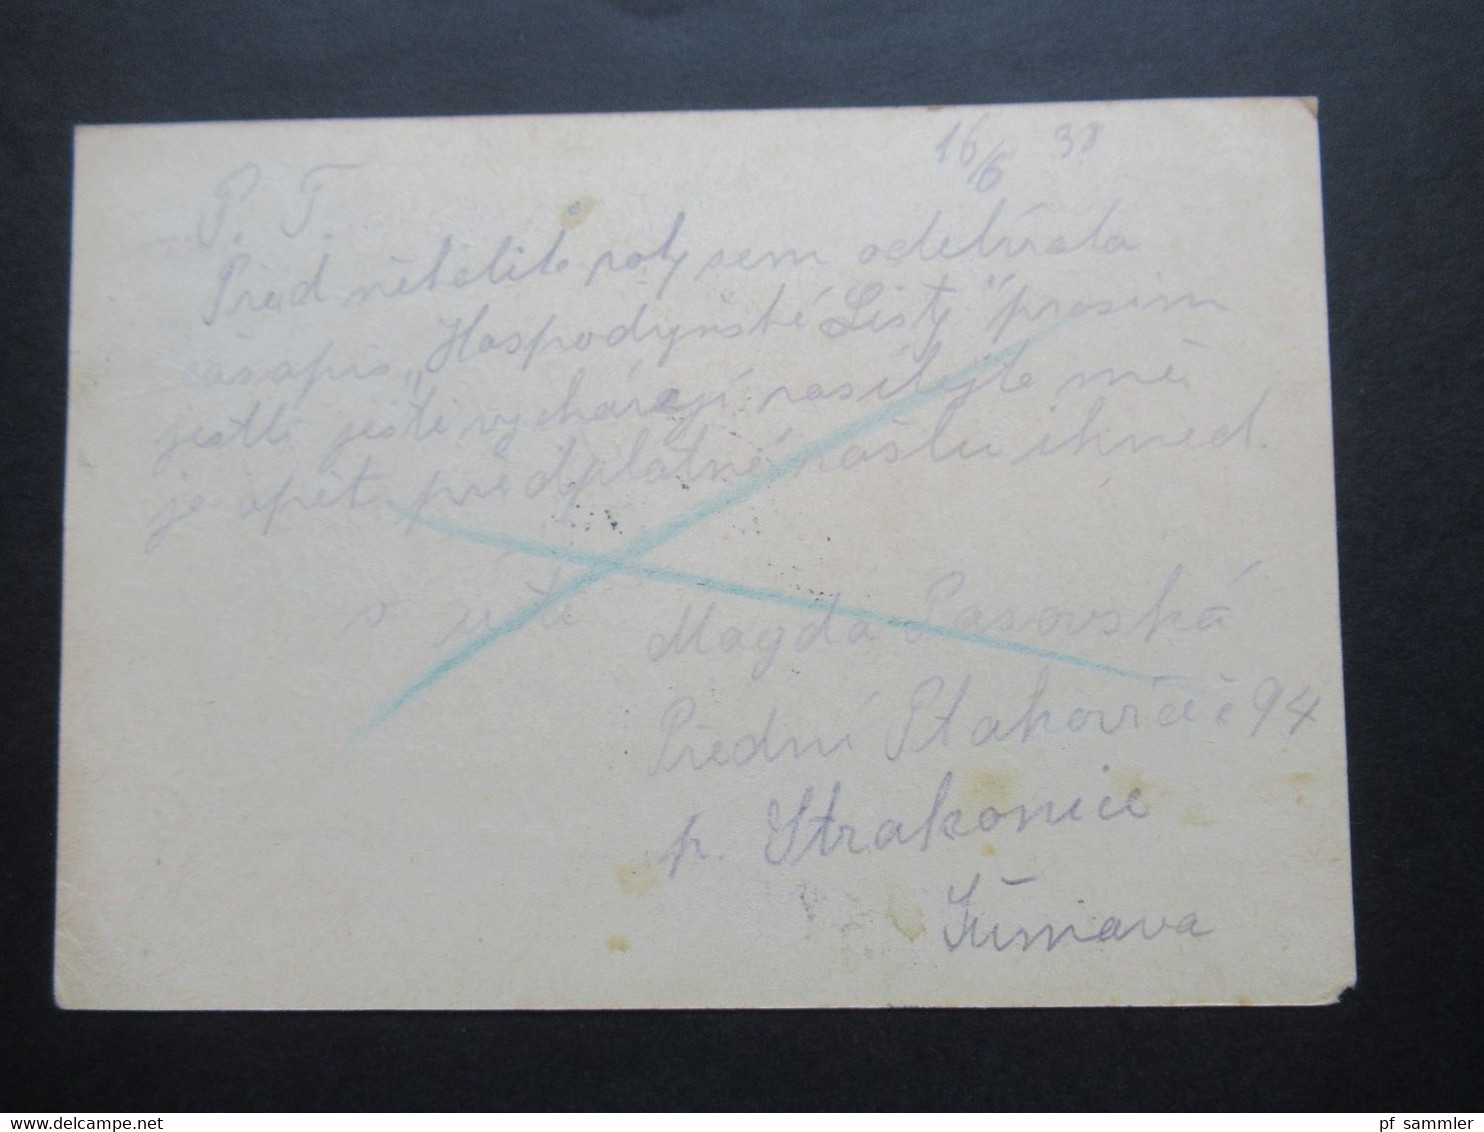 16/6 38
P. T.
Před několika roky jsem odebírala
časopis „Hospodyňské Listy" prosím
jestli ještě vycházejí zasílejte mě
je opět předplatné zašlu ihned.
v úctě
Magda Pasovská
Přední Ptakovice č 94
p. Strakonice
Šumava
www.delcampe.net
pf sammler